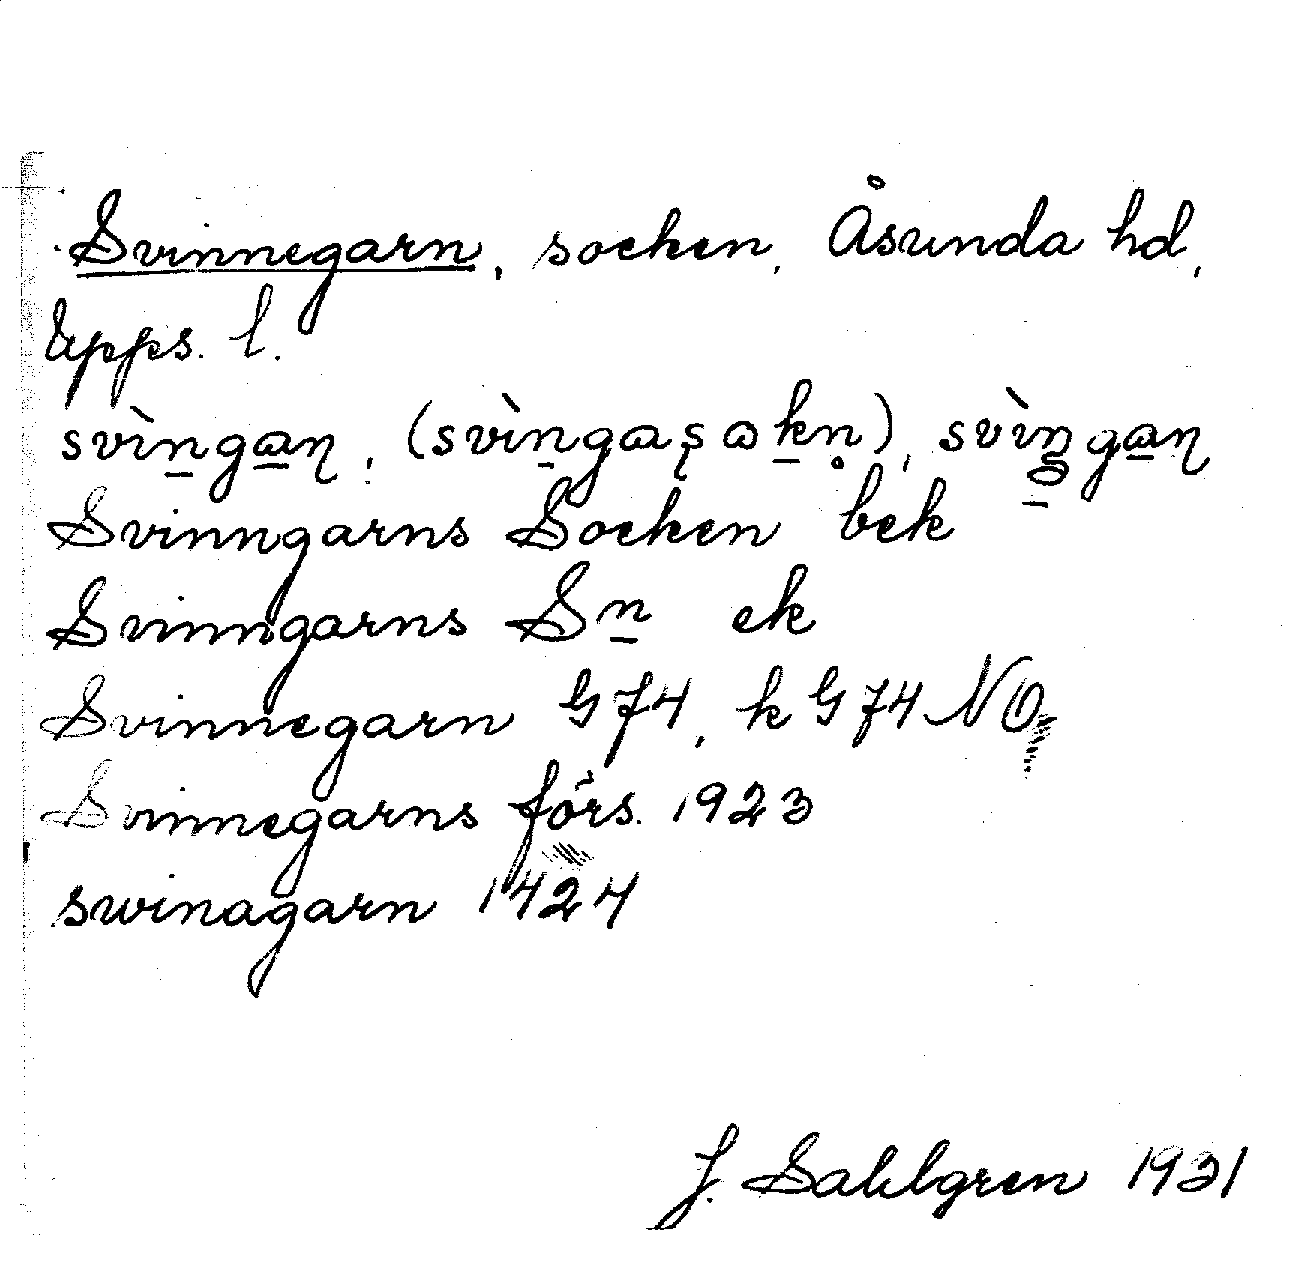 Svinnegarn, socken, Åsunda hd,
Upps. l.
svìngaɳ, (svìngaʂɷkn̥), svìŋgaɳ
Svinngarns Socken bek
Svinngarns Sn ek
Svinnegarn G74, k G74 NO
Svinnegarns förs. 1923
swinagarn 1424
J. Sahlgren 1931